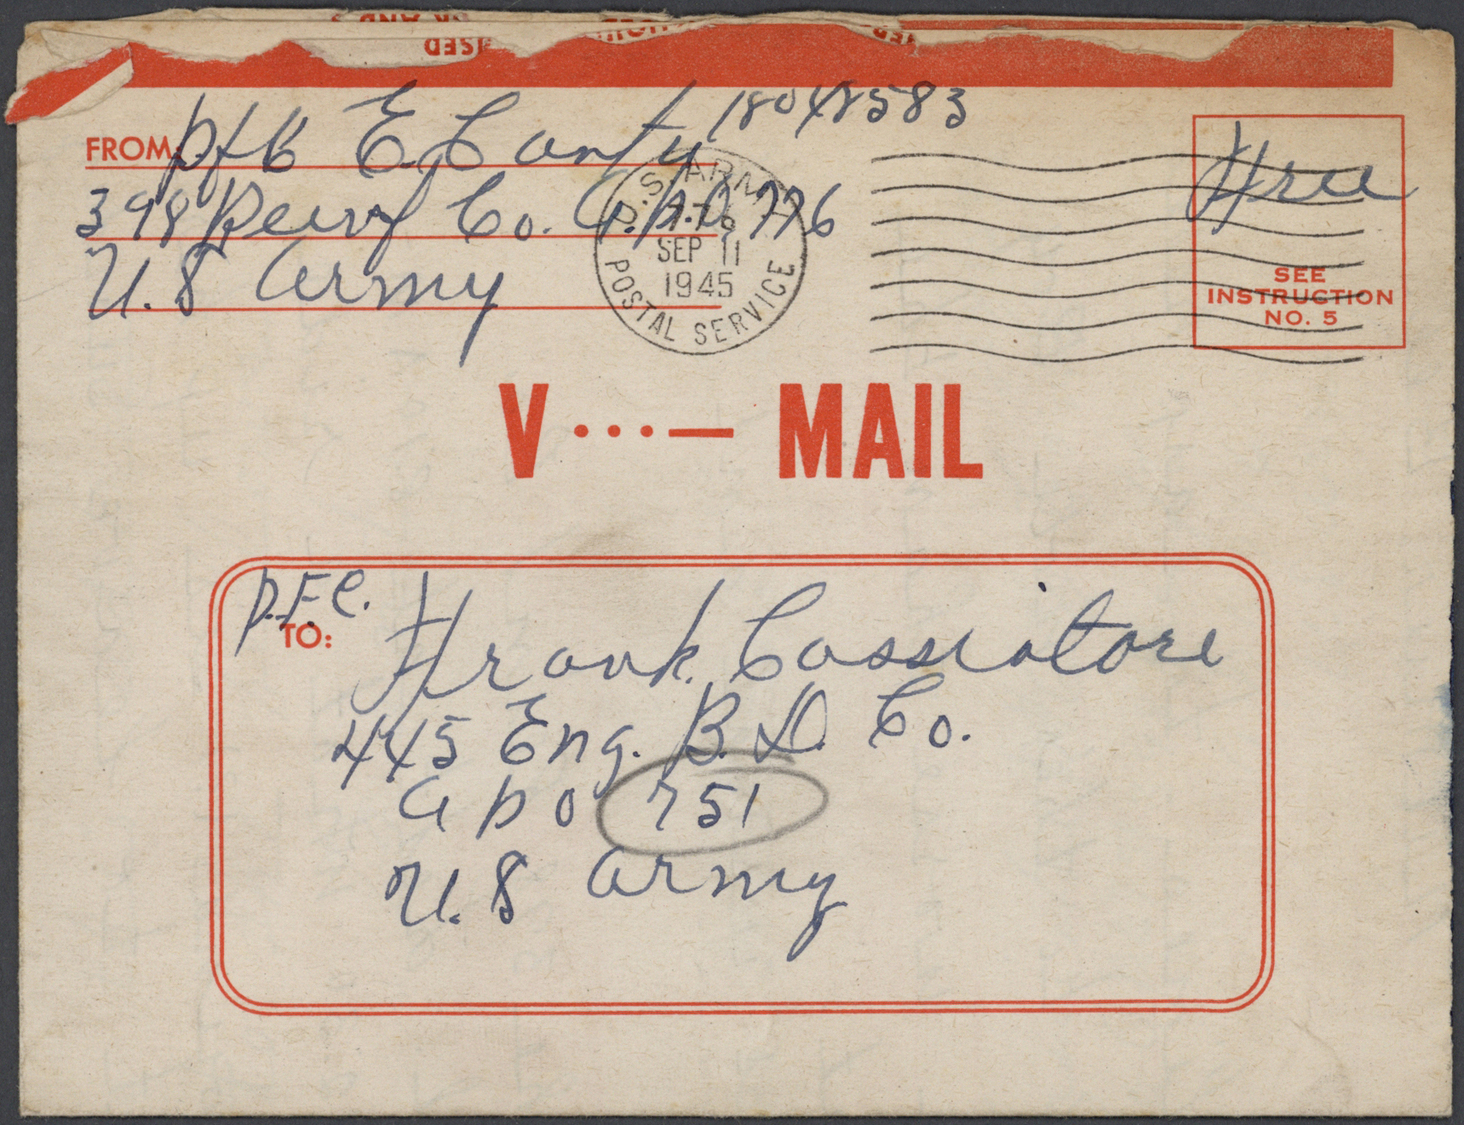 FROM: Pfc E. Canty 18048583
398 Reinf Co. A.P.O. 776
U.S Army
U.S. ARMY
SEP 11
1945
POSTAL SERVICE
Free
SEE
INSTRUCTION
NO. 5
V···— MAIL
P.F.C.
TO: Frank Cassiatore
445 Eng. B.D. Co.
APO 751
U.S Army